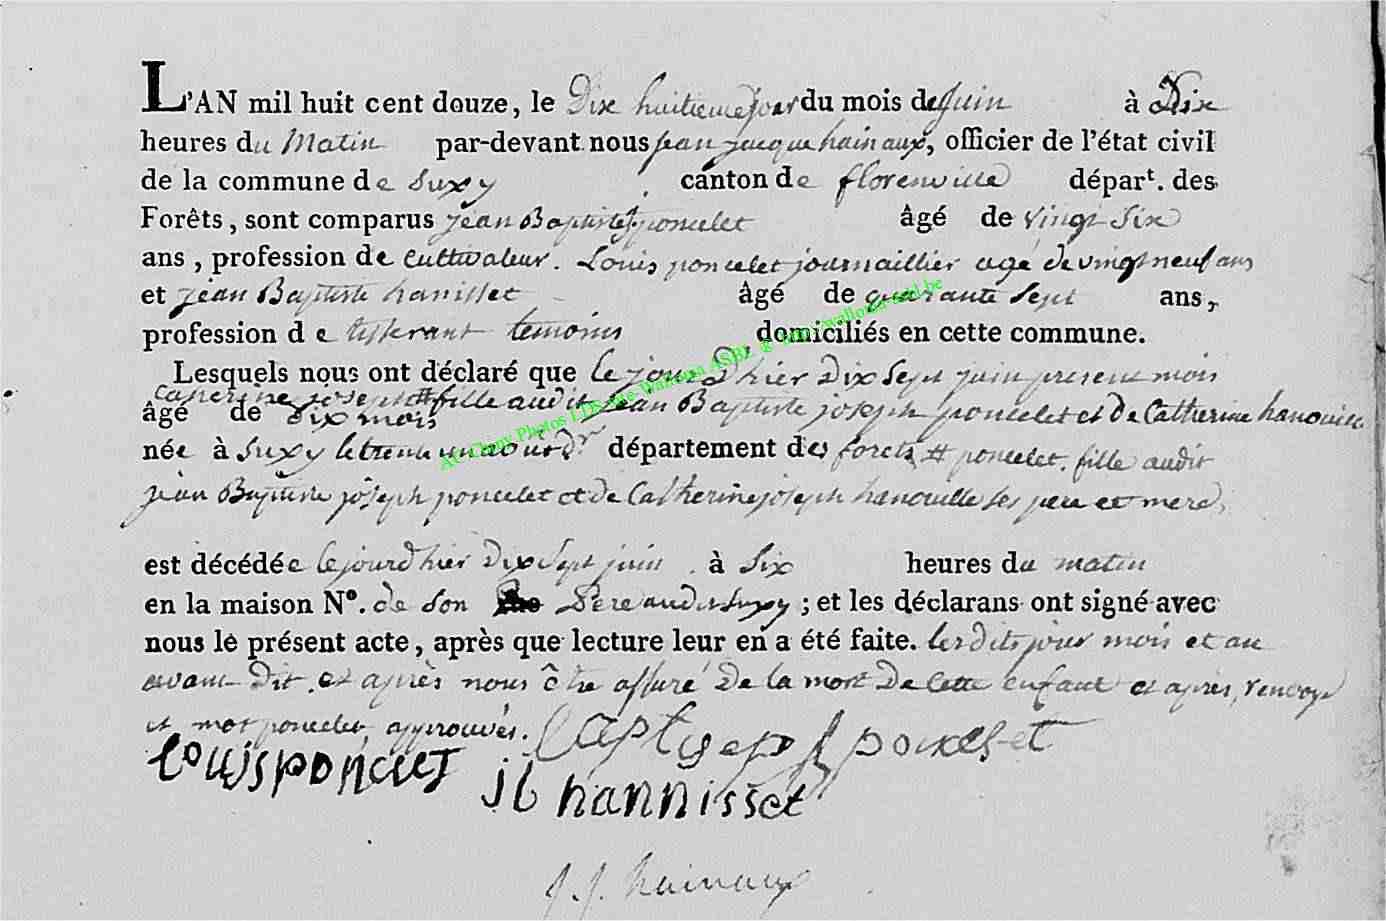 L'AN mil huit cent douze, le Dix huitieme jour du mois de Juin à Dix
heures du Matin par-devant nous jean jacque hainaux, officier de l'état civil
de la commune de Suxy canton de florenville départ. des
Forêts, sont comparus jean Baptiste j. poncelet âgé de vingt Six
ans, profession de cultivateur. Louis poncelet journaillier agé de vingt neuf ans
et jean Baptiste hanisset âgé de quarante Sept ans,
profession de tisserant temoins domiciliés en cette commune.
Lesquels nous ont déclaré que le jour D'hier Dix Sept juin present mois
Catherine joseph # fille audit jean Baptiste joseph poncelet et de Catherine hanouille
âgé de dix mois
née à Suxy le trente un aout Dr département des forets # poncelet. fille audit
jean Baptiste joseph poncelet et de Catherine joseph hanouille Ses pere et mere,
est décédée le jour d'hier Dix Sept juin à Six heures du matin
en la maison No. de Son Pere audit Suxy; et les déclarans ont signé avec
nous le présent acte, après que lecture leur en a été faite. les dits jour mois et an
avant Dit. et après nous être assuré De la mort De Cette enfant et après, renvoye
et mot poncelet, approuvés.
Louis poncelet j poncelet
jb hannisset
J. J. hainaux
At Cluny Photos LDS site Wallonia ASBL © http://wallonia-asbl.be